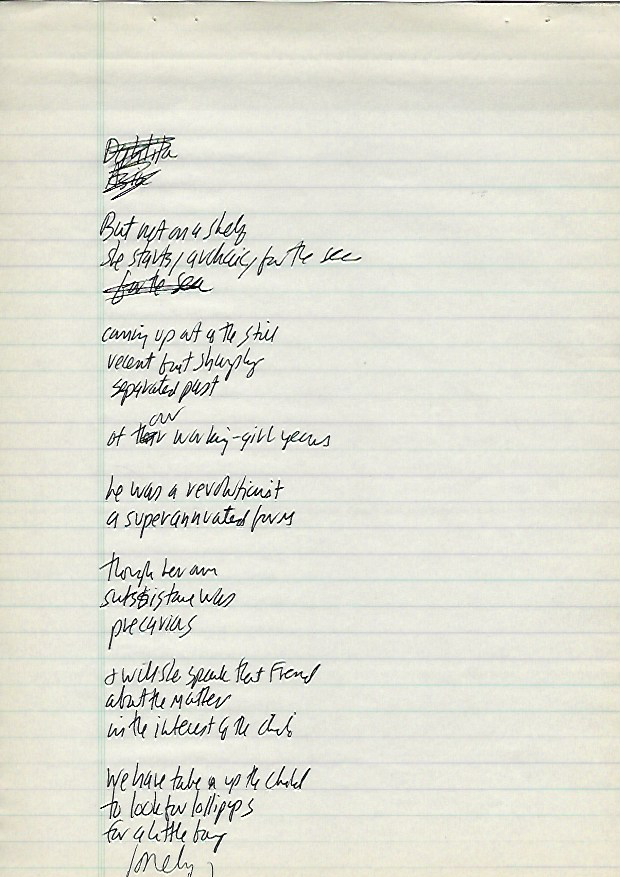 But not on a shelf
she starts, archaic, for the sea
for the sea
coming up out of the still
recent but sharply
separated past
our
of working-girl years
he was a revolutionist
a superannuated forms
though her own
subsistance was
precarious
& will she speak that French
about the matter
in the interest of the
we have taken up the child
to look for lollipops
for a little boy
lonely,